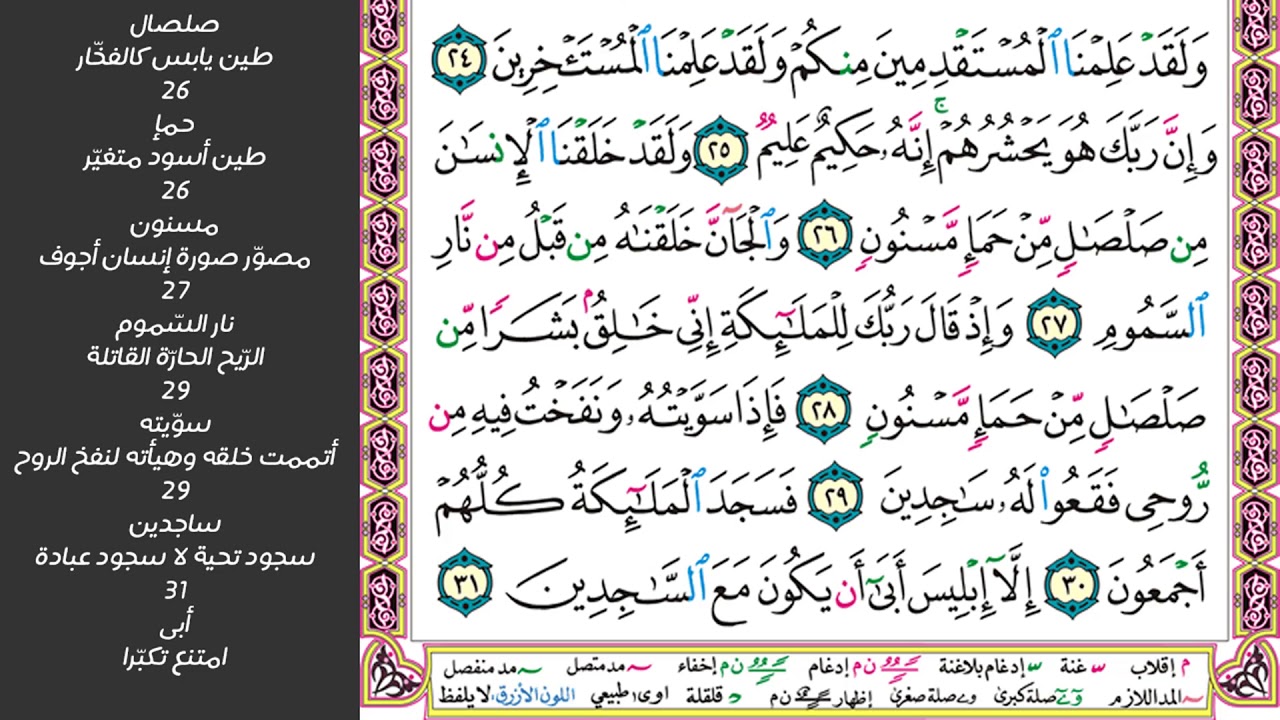 وَلَقَدْ عَلِمْنَا ٱلْمُسْتَقْدِمِينَ مِنكُمْ وَلَقَدْ عَلِمْنَا ٱلْمُسْتَـْٔخِرِينَ ٢٤
وَإِنَّ رَبَّكَ هُوَ يَحْشُرُهُمْ ۚ إِنَّهُۥ حَكِيمٌ عَلِيمٌ ٢٥ وَلَقَدْ خَلَقْنَا ٱلْإِنسَـٰنَ
مِن صَلْصَـٰلٍ مِّنْ حَمَإٍ مَّسْنُونٍ ٢٦ وَٱلْجَآنَّ خَلَقْنَـٰهُ مِن قَبْلُ مِن نَّارِ
ٱلسَّمُومِ ٢٧ وَإِذْ قَالَ رَبُّكَ لِلْمَلَـٰٓئِكَةِ إِنِّى خَـٰلِقٌۢ بَشَرًا مِّن
صَلْصَـٰلٍ مِّنْ حَمَإٍ مَّسْنُونٍ ٢٨ فَإِذَا سَوَّيْتُهُۥ وَنَفَخْتُ فِيهِ مِن
رُّوحِى فَقَعُوا۟ لَهُۥ سَـٰجِدِينَ ٢٩ فَسَجَدَ ٱلْمَلَـٰٓئِكَةُ كُلُّهُمْ
أَجْمَعُونَ ٣٠ إِلَّآ إِبْلِيسَ أَبَىٰٓ أَن يَكُونَ مَعَ ٱلسَّـٰجِدِينَ ٣١
م إقلاب غنة إدغام بلاغنة ن م إدغام ن م إخفاء مد متصل مد منفصل
المد اللازم صلة كبرى و ے صلة صغرى إظهار ن م قلقلة اوى طبيعي اللون الأزرق، لا يلفظ
صلصال
طين يابس كالفخّار
26
حمإ
طين أسود متغيّر
26
مسنون
مصوّر صورة إنسان أجوف
27
نار السّموم
الرّيح الحارّة القاتلة
29
سوّيته
أتممت خلقه وهيأته لنفخ الروح
29
ساجدين
سجود تحية لا سجود عبادة
31
أبى
امتنع تكبّرا